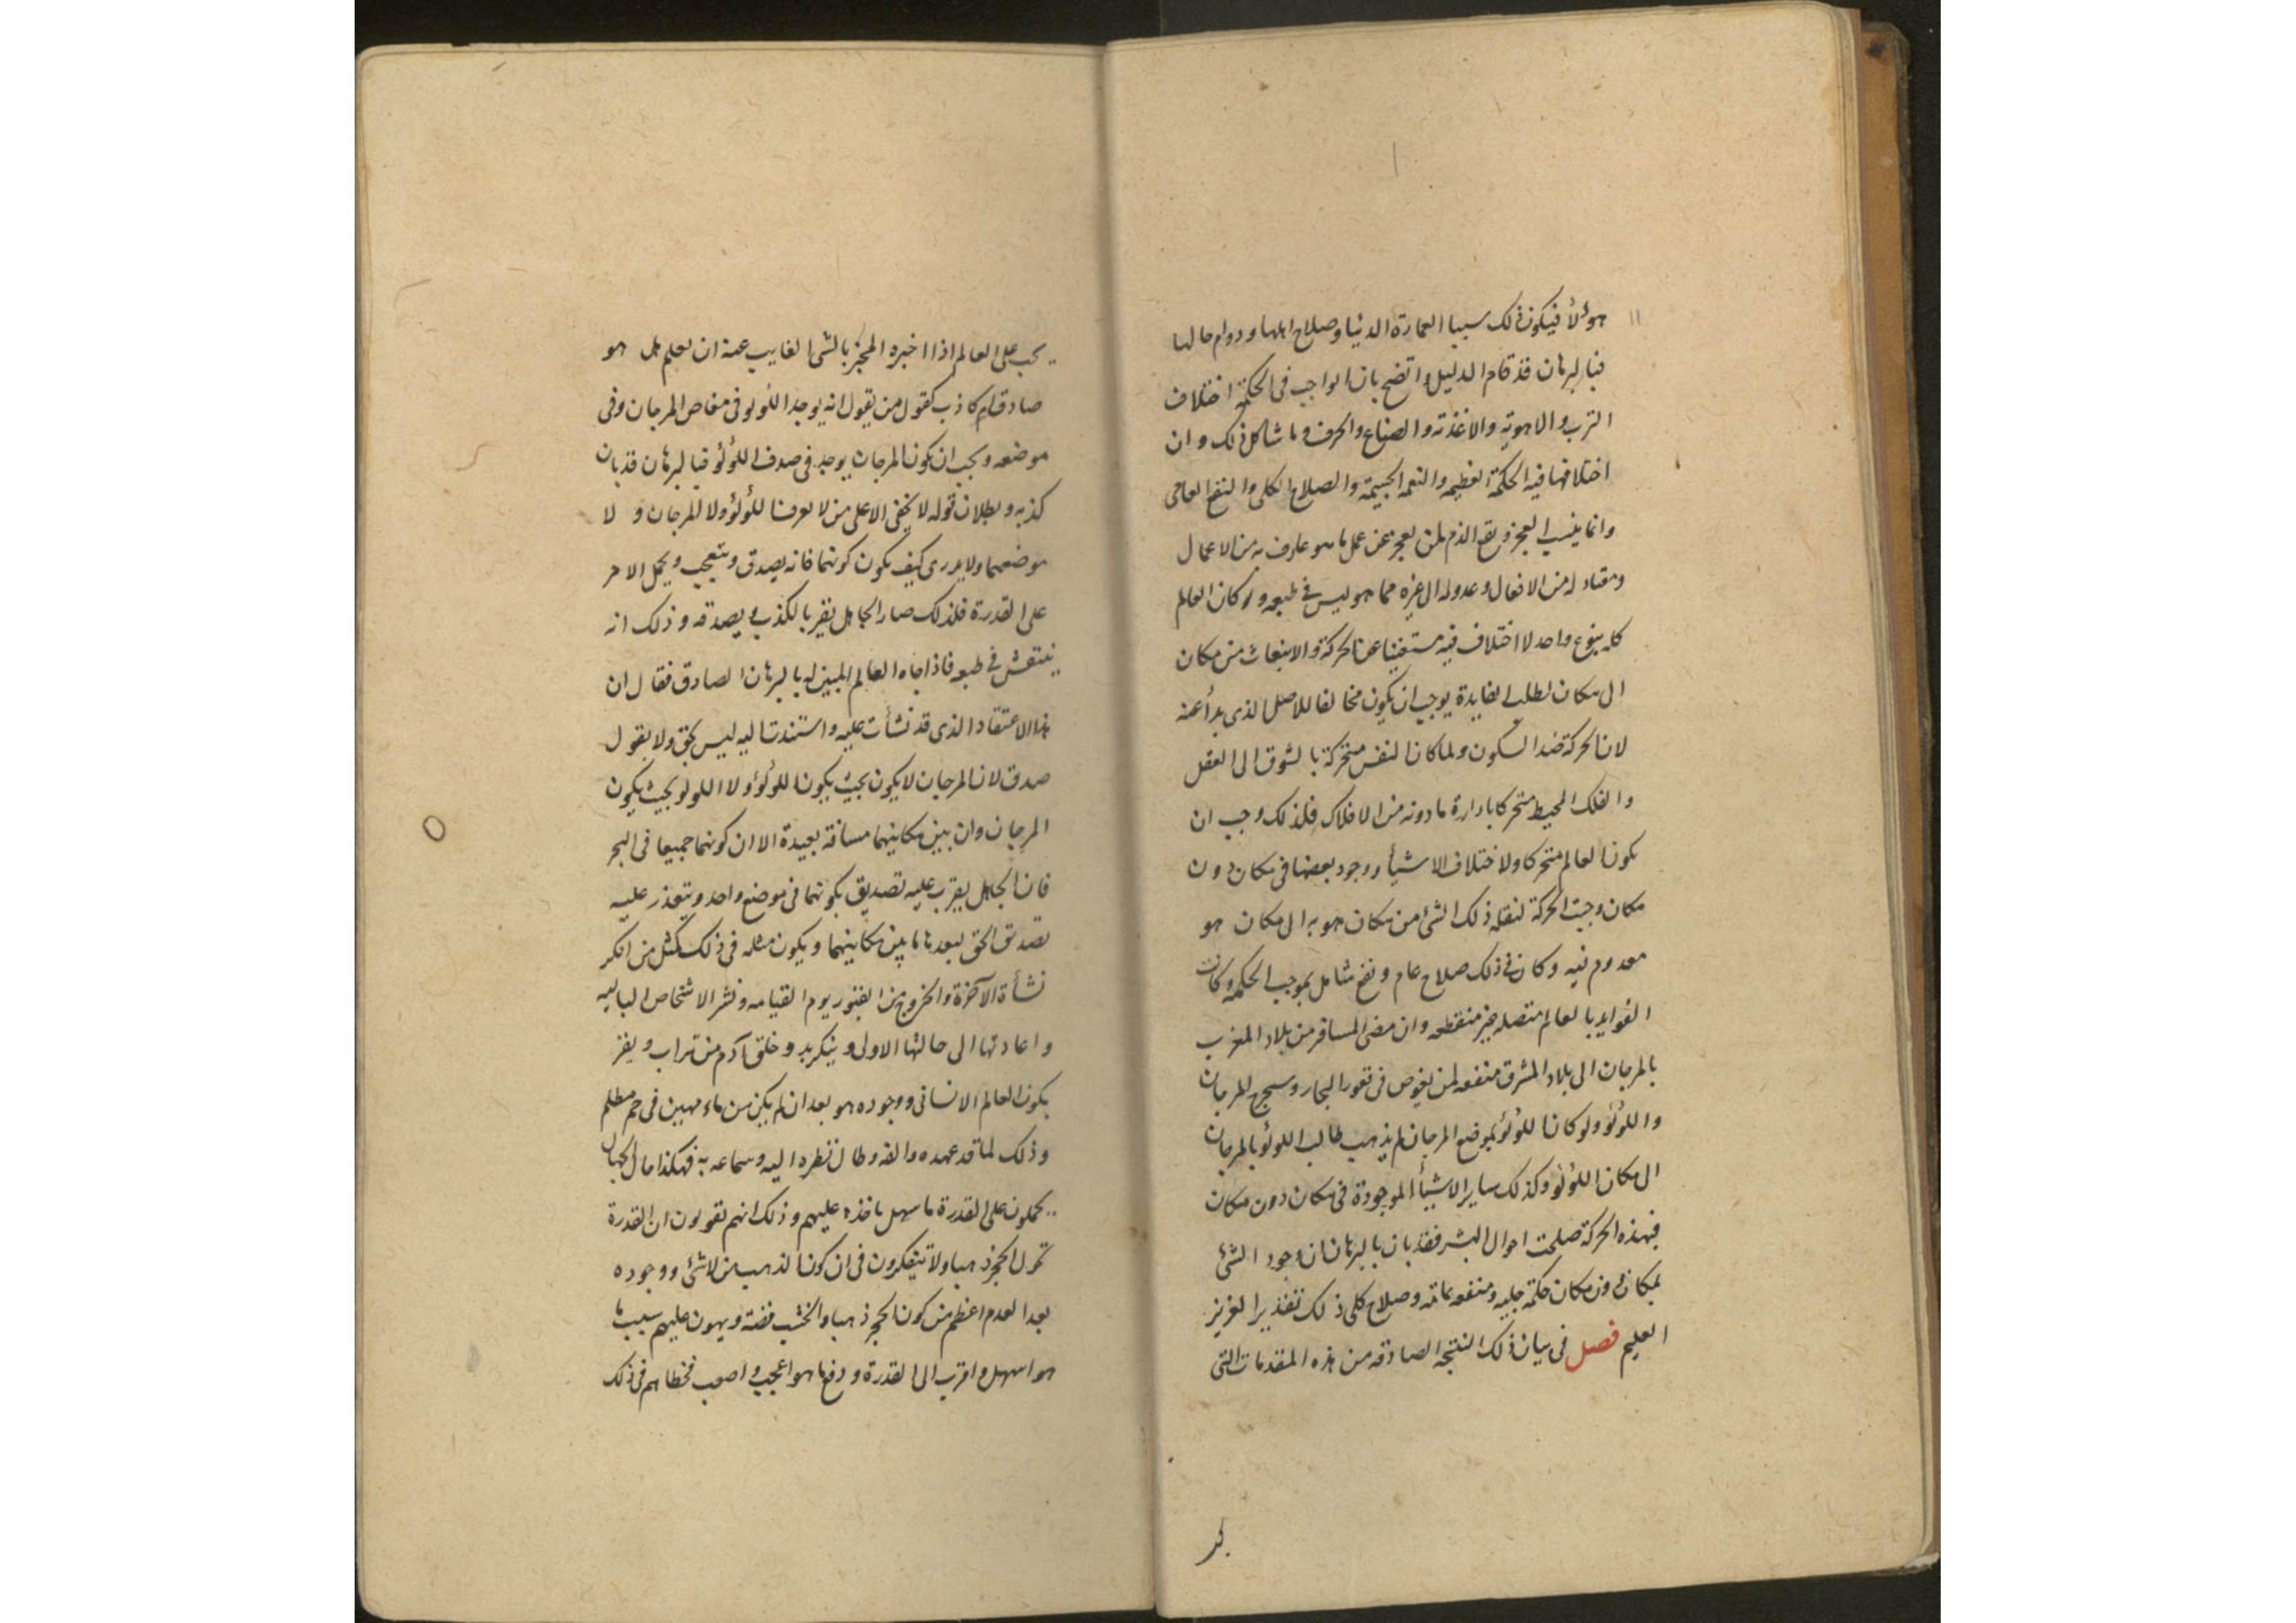 ١١
هؤلأ فيكون ذلك سببا العمارة الدنيا وصلاح اهلها ودوام حالها
فبالبرهان قد قام الدليل واتضح بان الواجب فى الحكمة اختلاف
الترب والاهوية والاغذية والصنايع والحرف وما شاكل ذلك وان
اختلافها فيه الحكمة العظيمه والنعمه الجسيمة والصلاح الكلى والنفع العامى
وانما ينسب العجز ويقع الذم لمن يعجز عن عمل ما هو عارف به من الاعمال
ومعتاد له من الافعال وعدوله الى غيره مما هو ليس فى طبعه ولو كان العالم
كله بنوع واحد لا اختلاف فيه مستغنيا عن الحركة والانبعاث من مكان
الى مكان لطلب الفايدة يوجب ان يكون مخالفا للاصل الذى بدأ عنه
لان الحركة ضد السكون ولما كان النفس متحركة بالشوق الى العقل
والفلك المحيط متحركا بادارة ما دونه من الافلاك فلذلك وجب ان
يكون العالم متحركا ولاختلاف الاشيأ ووجود بعضها فى مكان دون
مكان وجبت الحركة لنقله ذلك الشى من مكان هو به الى مكان هو
معدوم فيه وكان فى ذلك صلاح عام ونفع شامل بموجب الحكمة وكانت
الفوايد بالعالم متصله غير منقطعه وان مضى المسافر من بلاد المغرب
بالمرجان الى بلاد المشرق منفعه لمن يغوص فى قعور البحار وسيح المرجان
واللؤلؤ ولو كان اللؤلؤ بموضع المرجان لم يذهب طالب اللولؤ بالمرجان
الى مكان اللؤلؤ وكذلك ساير الاشيأ الموجودة فى مكان دون مكان
فبهذه الحركة صلحت احوال البشر فقد بان بالبرهان ان وجود الشئ
بمكان دون مكان حكمة جليه ومنفعه عامه وصلاح كلى ذلك تقدير العزيز
العليم فصل فى بيان ذلك النتيجه الصادقه من هذه المقدمات التى
يجب على العالم اذا اخبره المخبر بالشى الغايب عنه ان يعلم هل هو
صادق ام كاذب كقول من يقول انه يوجد اللولو فى مغاص المرجان وفى
موضعه ويجب ان يكون المرجان يوجد فى صدف اللؤلؤ فبالبرهان قد بان
كذبه وبطلان قوله لا يخفى الا على من لا يعرف اللؤلؤ ولا المرجان ولا
موضعهما ولا يدرى كيف يكون كونهما فانه يصدق ويتعجب ويحمل الامر
على القدرة فلذلك صار الجاهل يقر بالكذب ويصدقه وذلك انه
ينتقش فى طبعه فاذا جاه العالم المبين له بالبرهان الصادق فقال ان
هذا الاعتقاد الذى قد نشأت عليه واستندت اليه ليس بحق ولا بقول
صدق لان المرجان لا يكون بحيث يكون اللؤلؤ ولا اللولو بحيث يكون
المرجان وان بين مكانيهما مسافة بعيدة الا ان كونهما جميعا فى البحر
فان الجاهل يقرب عليه تصديق بكونهما فى موضع واحد ويتعذر عليه
تصديق الحق لبعد ما بين مكانيهما ويكون مثله فى ذلك كمثل من انكر
نشأة الآخرة والخروج من القبور يوم القيامه ونشر الاشخاص الباليه
واعادتها الى حالتها الاولى وينكر بدو خلق آدم من تراب ويقر
بكون العالم الانسانى ووجوده هو بعد ان لم يكن من ماء مهين فى رحم مظلم
وذلك لما قد عهده والفه وطال نظره اليه وسماعه به فهكذا حال الجهال
يحملون على القدرة ما سهل ماخذه عليهم وذلك انهم يقولون ان القدرة
تحول الحجر ذهبا ولا يتفكرون فى ان كون الذهب من لا شئ ووجوده
بعد العدم اعظم من كون الحجر ذهبا والخشب فضة ويهون عليهم سبب ما
هو اسهل واقرب الى القدرة ودفع ما هو اعجب واصعب فخطاهم فى ذلك